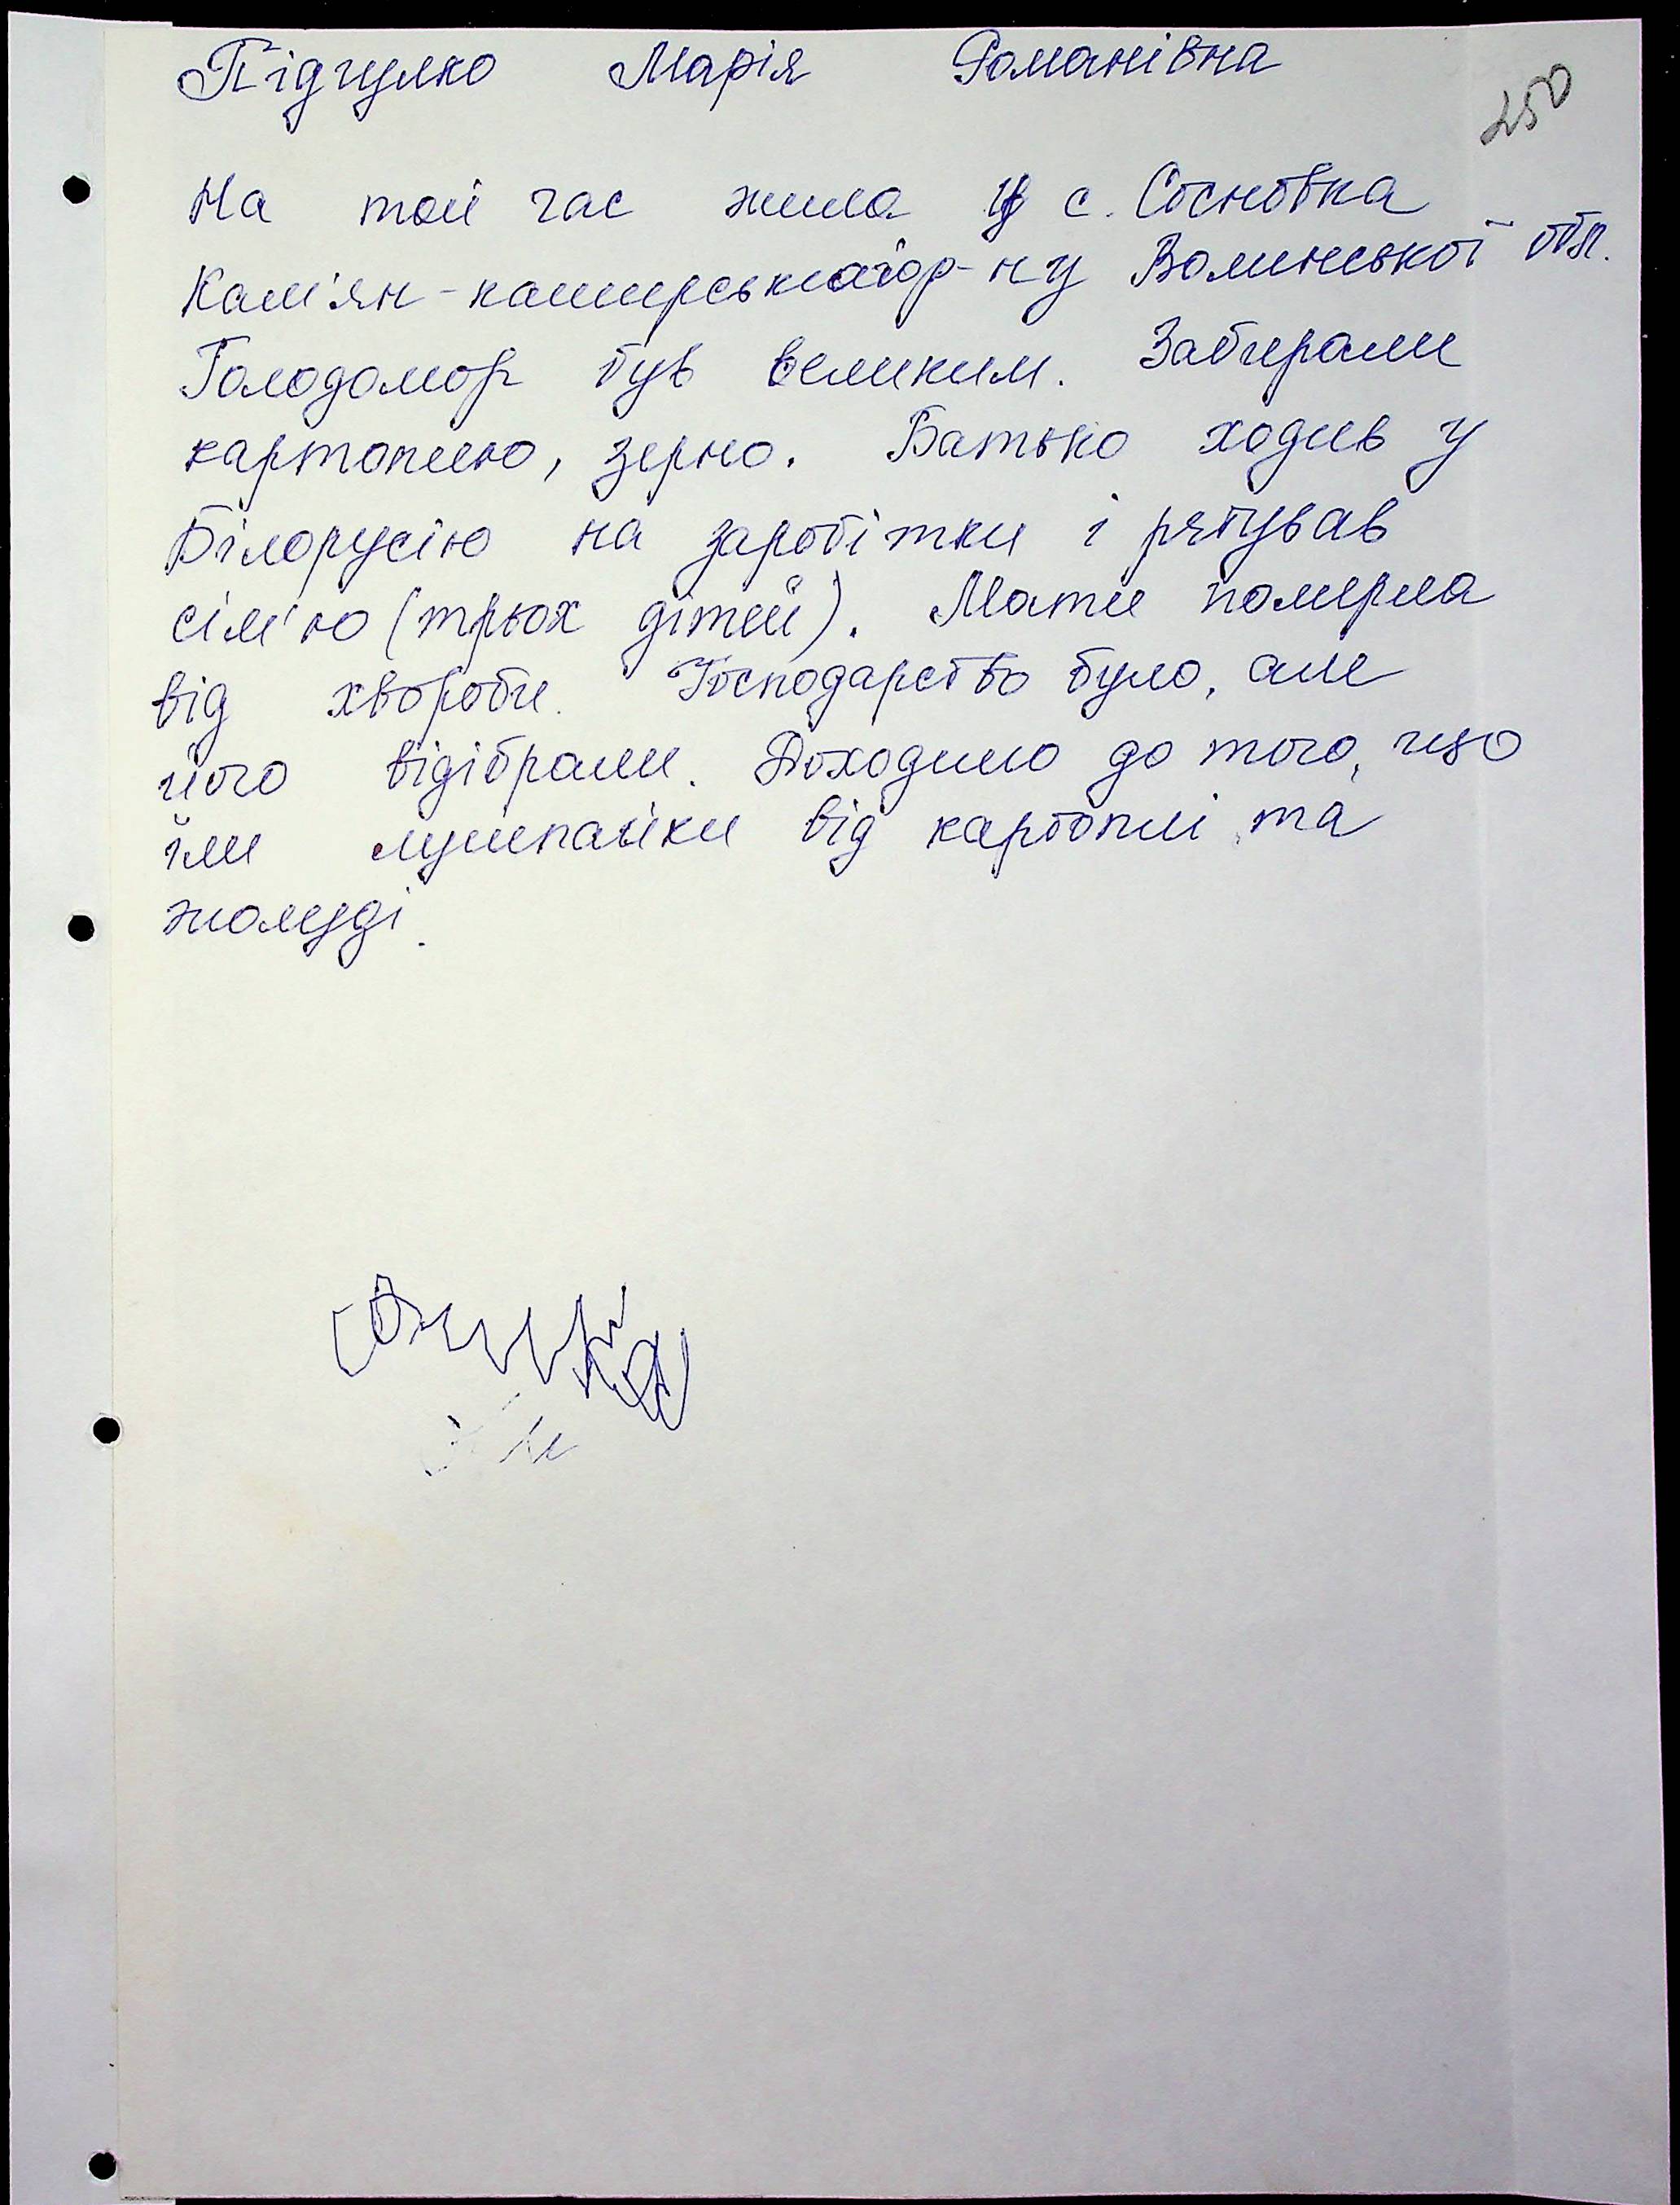 Підгулко Марія Романівна
250
На той час жила у с. Сосновка
Кам'ян-каширського р-ну Волинської обл.
Голодомор був великим. Забирали
картоплю, зерно. Батько ходив у
Білорусію на заробітки і рятував
сім'ю (трьох дітей). Мати померла
від хвороби. Господарство було, але
його відібрали. Доходило до того, що
їли лушпайки від картоплі та
жолуді.